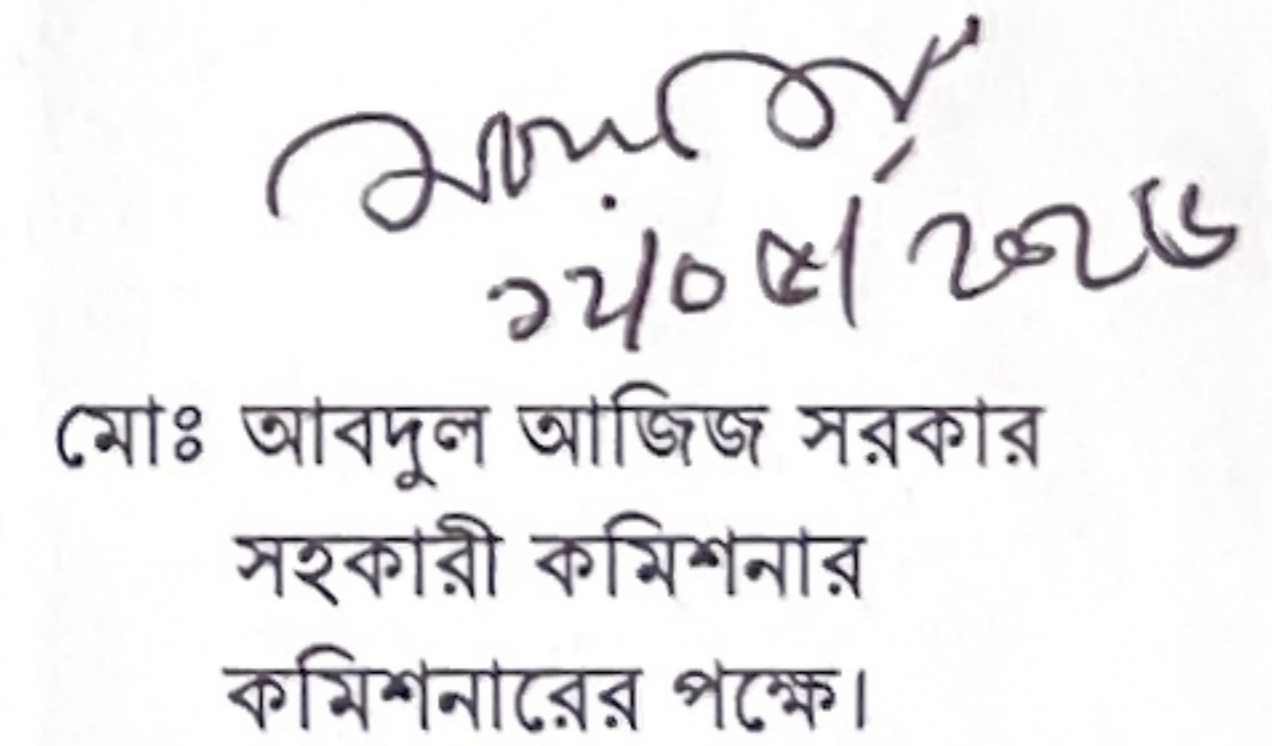 ১২/০৫/২০২৬
মোঃ আবদুল আজিজ সরকার
সহকারী কমিশনার
কমিশনারের পক্ষে।